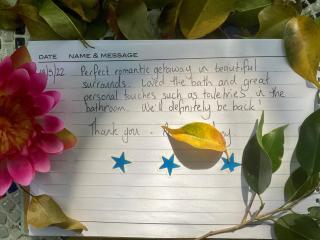 DATE NAME & MESSAGE
/5/22 Perfect romantic getaway in beautiful
surrounds. Loved the bath and great
personal touches such as toiletries in the
bathroom. We'll definitely be back!
Thank you -